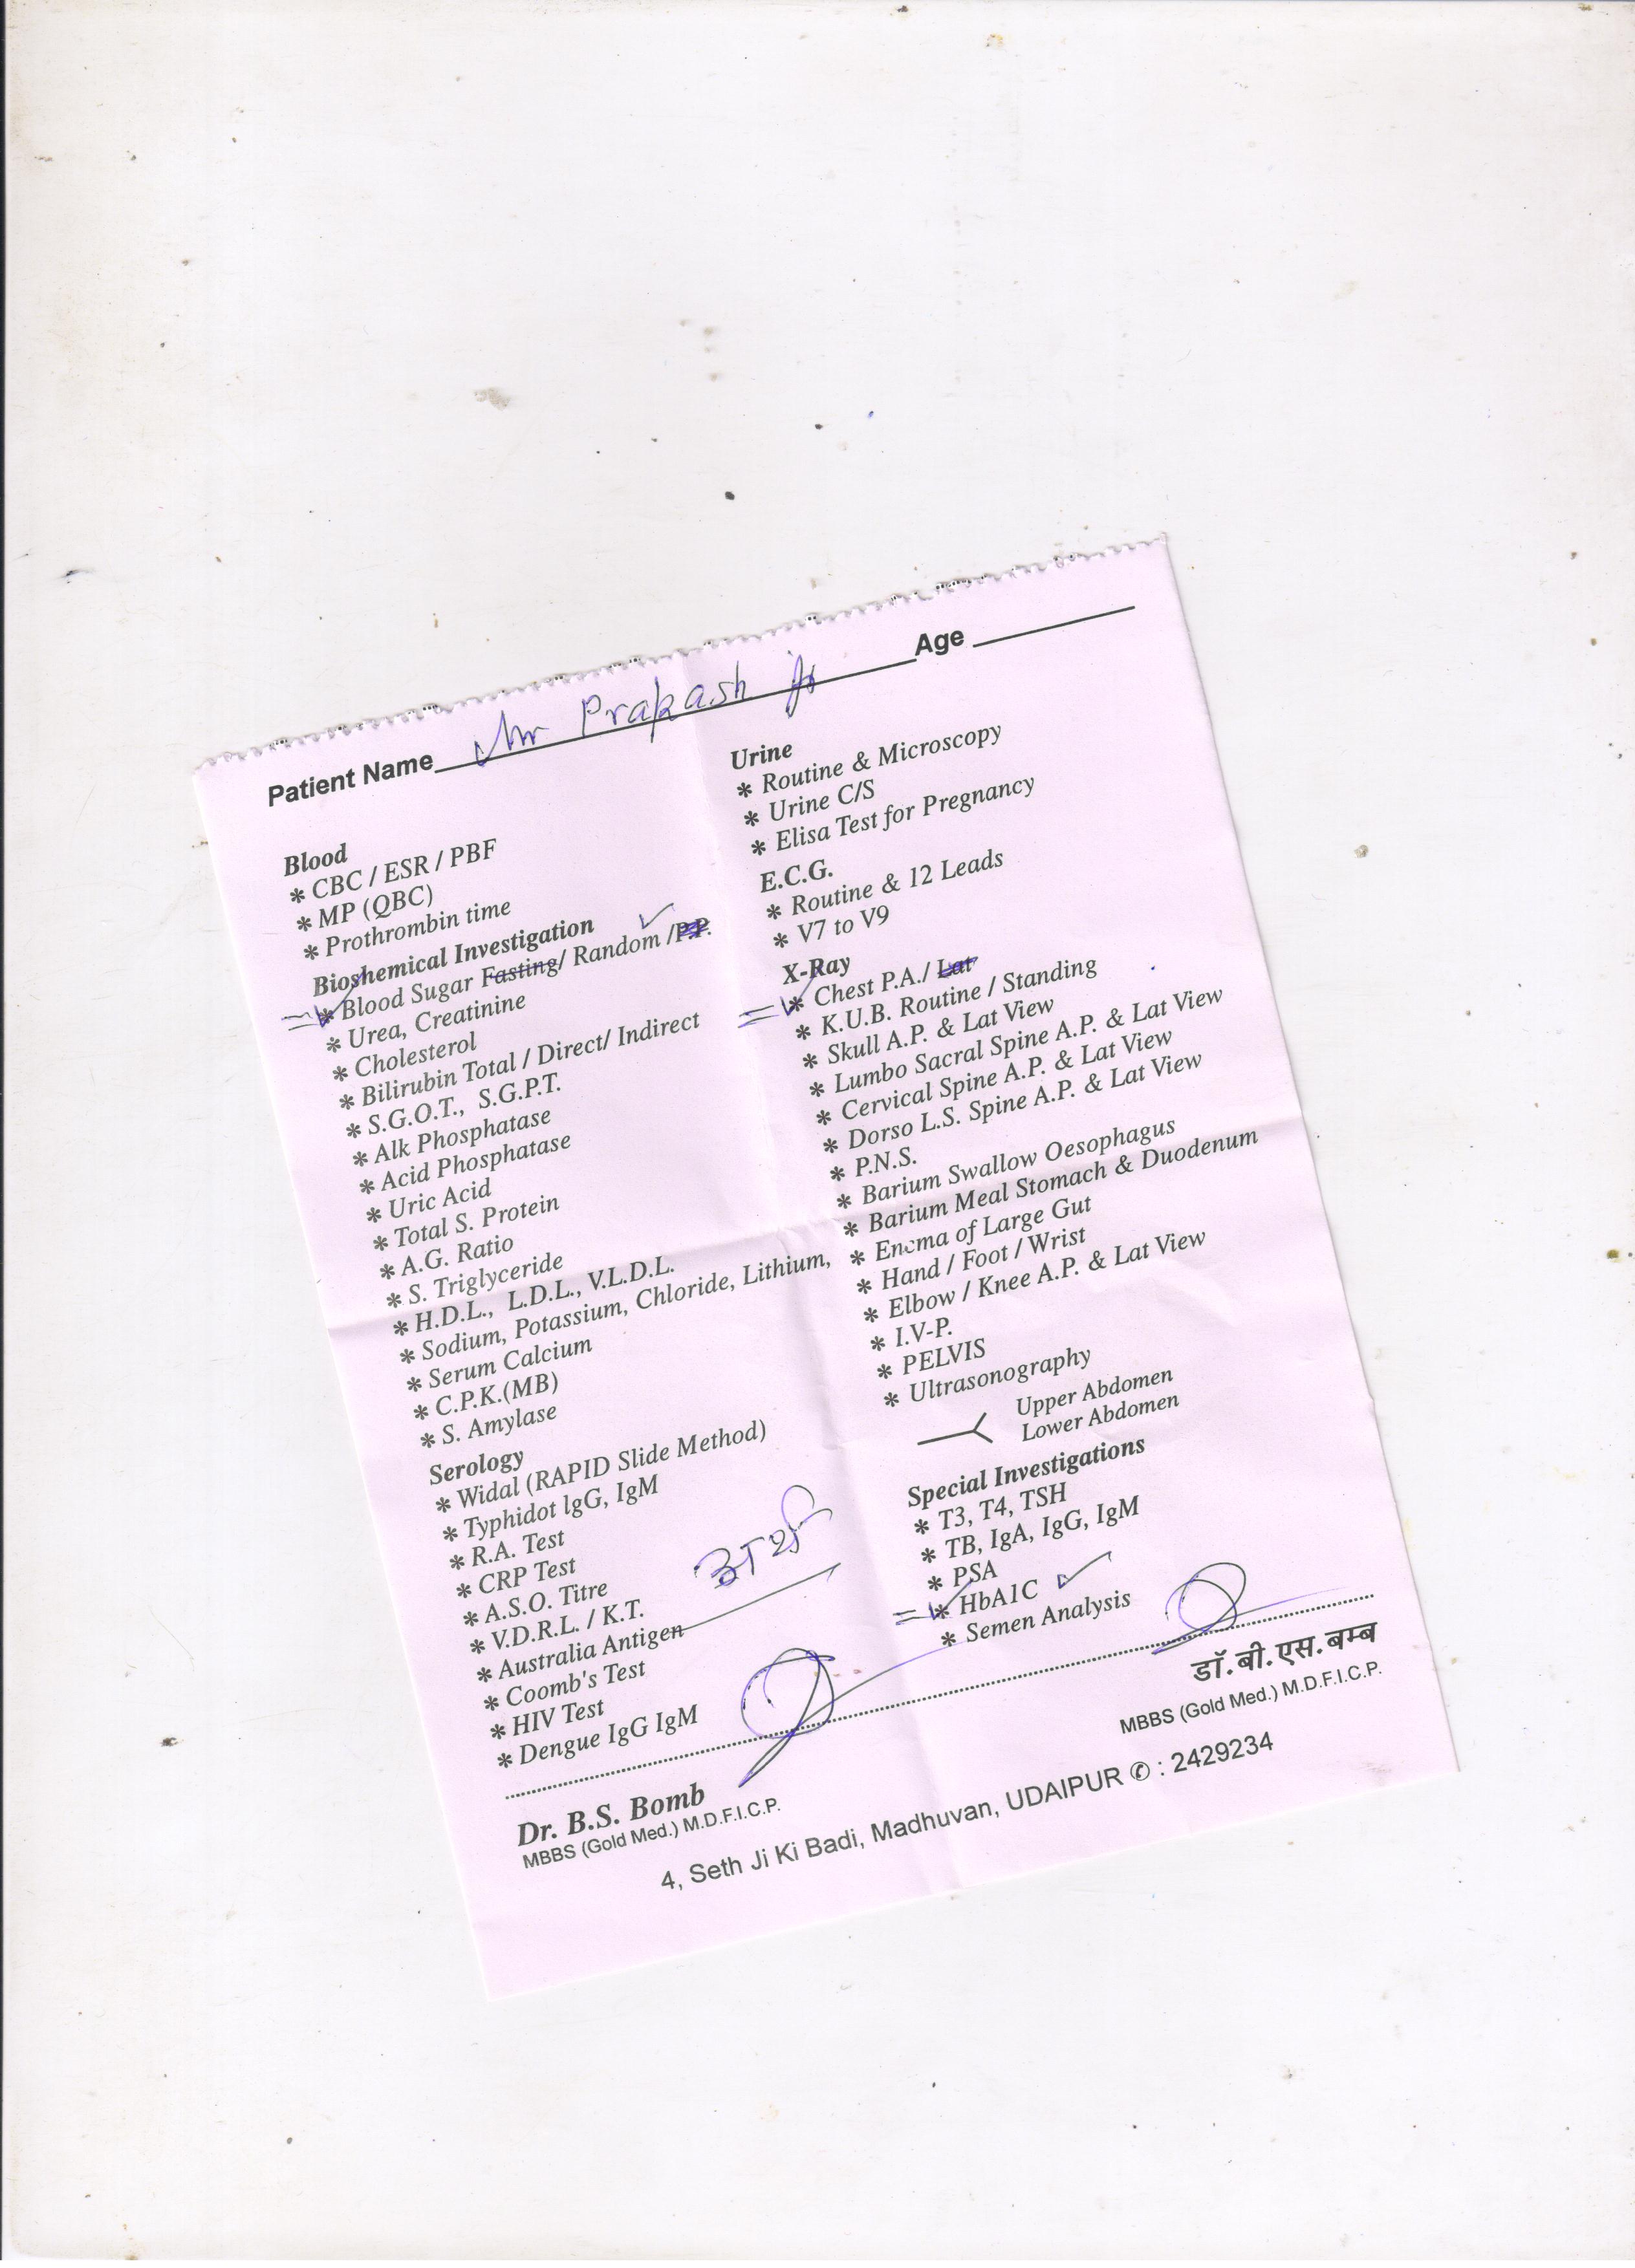 Patient Name Mr Prakash ji Age
Blood
* CBC / ESR / PBF
* MP (QBC)
* Prothrombin time
Bioshemical Investigation
* Blood Sugar Fasting/ Random /P.P.
* Urea, Creatinine
* Cholesterol
* Bilirubin Total / Direct/ Indirect
* S.G.O.T., S.G.P.T.
* Alk Phosphatase
* Acid Phosphatase
* Uric Acid
* Total S. Protein
* A.G. Ratio
* S. Triglyceride
* H.D.L., L.D.L., V.L.D.L.
* Sodium, Potassium, Chloride, Lithium,
* Serum Calcium
* C.P.K.(MB)
* S. Amylase
Serology
* Widal (RAPID Slide Method)
* Typhidot lgG, IgM
* R.A. Test
* CRP Test
* A.S.O. Titre
* V.D.R.L. / K.T.
* Australia Antigen
* Coomb's Test
* HIV Test
* Dengue IgG IgM
Urine
* Routine & Microscopy
* Urine C/S
* Elisa Test for Pregnancy
E.C.G.
* Routine & 12 Leads
* V7 to V9
X-Ray
* Chest P.A./ Lat
* K.U.B. Routine / Standing
* Skull A.P. & Lat View
* Lumbo Sacral Spine A.P. & Lat View
* Cervical Spine A.P. & Lat View
* Dorso L.S. Spine A.P. & Lat View
* P.N.S.
* Barium Swallow Oesophagus
* Barium Meal Stomach & Duodenum
* Enema of Large Gut
* Hand / Foot / Wrist
* Elbow / Knee A.P. & Lat View
* I.V-P.
* PELVIS
* Ultrasonography
Upper Abdomen
Lower Abdomen
Special Investigations
* T3, T4, TSH
* TB, IgA, IgG, IgM
* PSA
* HbA1C
* Semen Analysis
Dr. B.S. Bomb
MBBS (Gold Med.) M.D.F.I.C.P.
डॉ.बी.एस.बम्ब
MBBS (Gold Med.) M.D.F.I.C.P.
4, Seth Ji Ki Badi, Madhuvan, UDAIPUR ✆ : 2429234